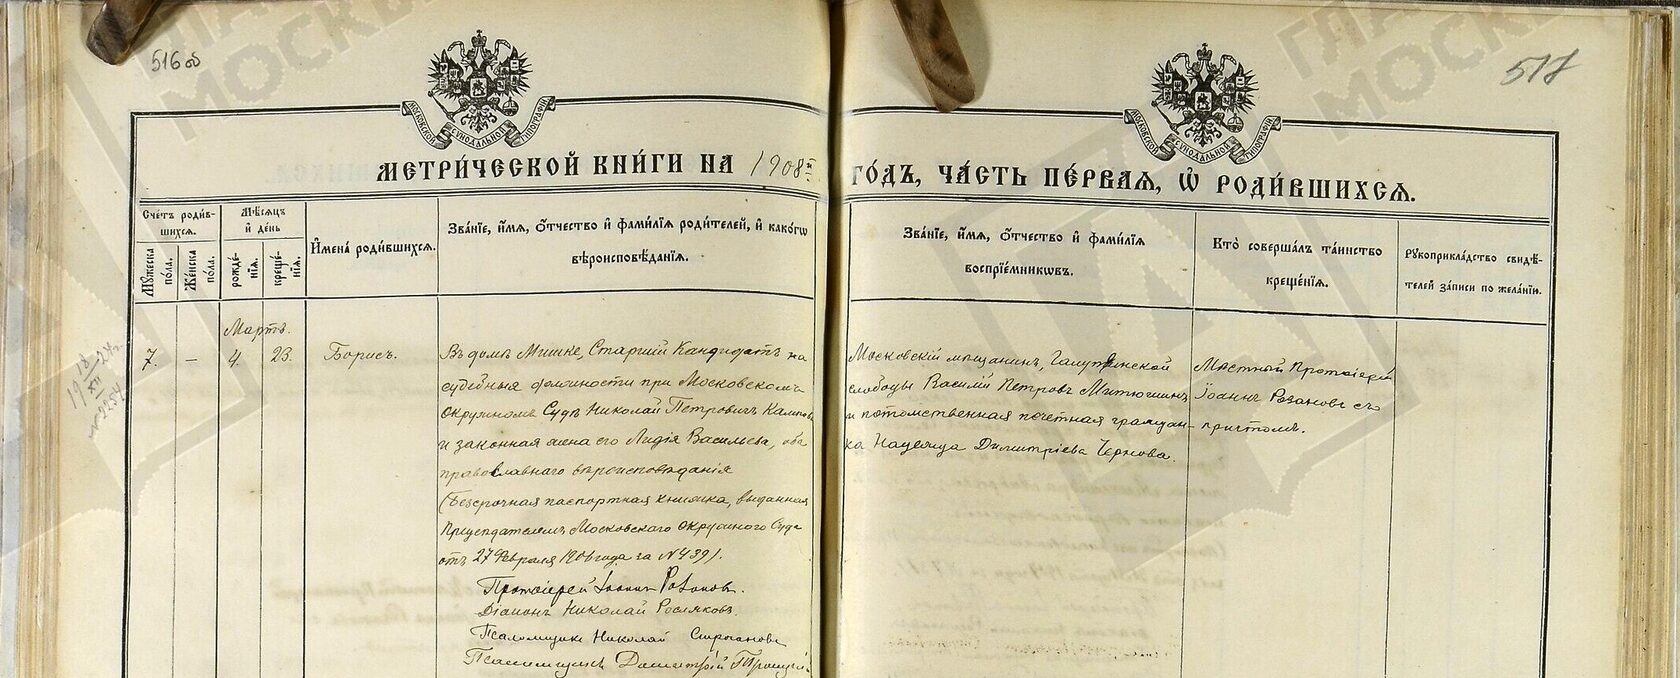 516 об
517
МОСКОВСКОЙ СѴНОДАЛЬНОЙ ТИПОГРАФІИ
МОСКОВСКОЙ СѴНОДАЛЬНОЙ ТИПОГРАФІИ
МЕТРИ́ЧЕСКОЙ КНИ́ГИ НА 1908й ГО́ДЪ, ЧА́СТЬ ПЕ́РВАѦ, Ѡ҆ РОДИ́ВШИХСѦ.
Сче́тъ роди́в-
шихсѧ.
Мꙋ́жеска по́ла.
Же́нска по́ла.
Мѣ́сѧцъ
и҆ де́нь
рожде́-нїѧ.
креще́-нїѧ.
И҆мена̀ роди́вшихсѧ.
Зва́нїе, и҆́мѧ, ѻ҆́тчество и҆ фами́лїѧ роди́телей, и҆ како́гѡ
вѣроисповѣ́данїѧ.
Зва́нїе, и҆́мѧ, ѻ҆́тчество и҆ фами́лїѧ
воспрїе́мникѡвъ.
Кто̀ соверша́лъ та́инство
креще́нїѧ.
Рꙋкоприкла́дство свидѣ́-
телей за́писи по жела́нїю.
Мартъ.
7. — 4. 23. Борисъ.
Въ домѣ Мишке, Старшій Кандидатъ на
судебныя должности при Московскомъ
Окружномъ Судѣ Николай Петровичъ
и законная жена его Лидія Васильева, оба
православнаго вѣроисповѣданія
(Безсрочная паспортная книжка, выданная
Предсѣдателемъ Московскаго Окружного Суда
отъ 27 Февраля 1906 года за № 439).
Протоіерей Іоаннъ Розановъ.
Діаконъ Николай Росляковъ.
Псаломщикъ Николай
Псаломщикъ Димитрій
Московскій мѣщанинъ, Голутвинской
слободы Василій Петровъ Митюшинъ
и потомственная почетная граждан-
ка Надежда Димитріева Чернова.
Мѣстный Протоіерей
Іоаннъ Розановъ съ
причтомъ.